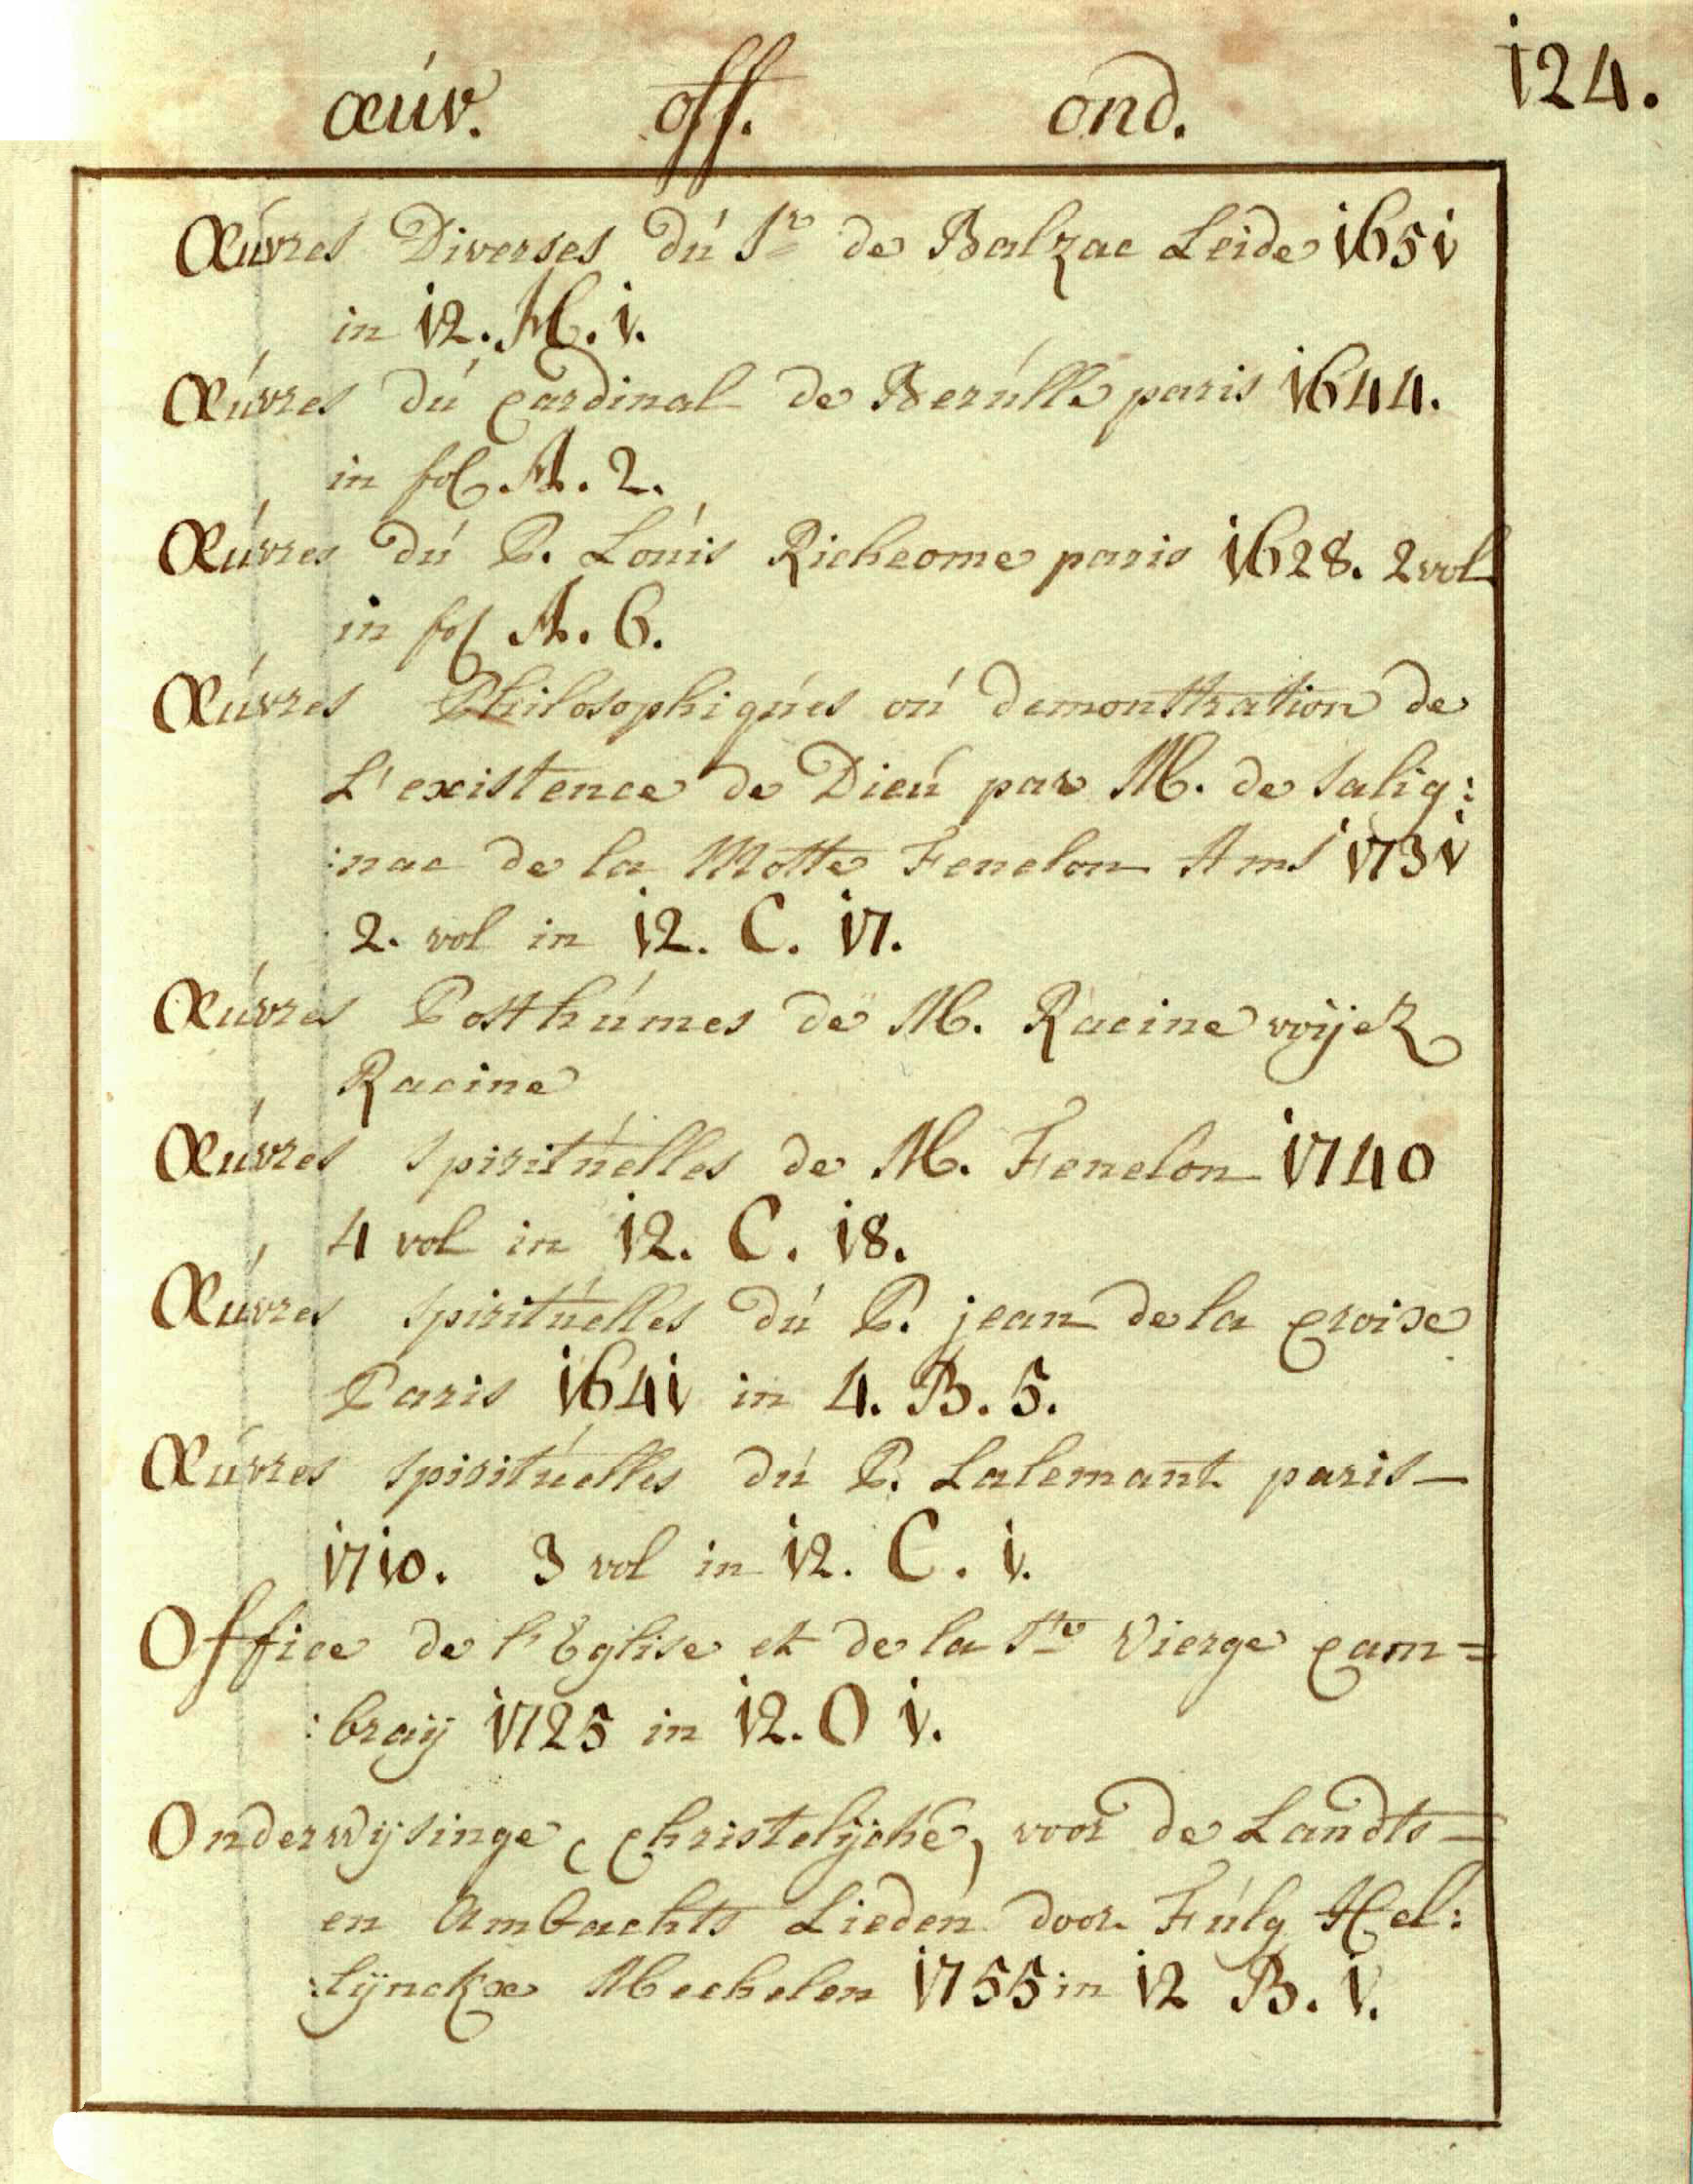 œúv. off. ond. 124.
Œúvres Diverses dú Sr de Balzac Leide 1651
in 12. M. 1.
Œúvres dú Cardinal de Berúlle paris 1644.
in fol A. 2.
Œúvres dú P. Loúis Richeome paris 1628. 2 vol
in fol A. 6.
Œúvres Philosophiqúes oú demonstration de
L'existence de Dieú par M. de Salig:
:nac de la Motte Fenelon Ams 1731
2. vol in 12. C. 17.
Œúvres Posthúmes de M. Racine voÿez
Racine
Œúvres Spiritúelles de M. Fenelon 1740
4 vol in 12. C. 18.
Œúvres Spiritúelles dú P. jean de la Croise
Paris 1641 in 4. B. 5.
Œúvres Spiritúelles dú P. Lalemant paris—
1710. 3 vol in 12. C. 1.
Office de l'Eglise et de la Ste Vierge Cam=
:braÿ 1725 in 12. O 1.
Onderwijsinge (Christelÿche) voor de Landts=
en Ambachts Lieden door Fúlg Hel:
:lÿnckx Mechelen 1755 in 12 B. 1.